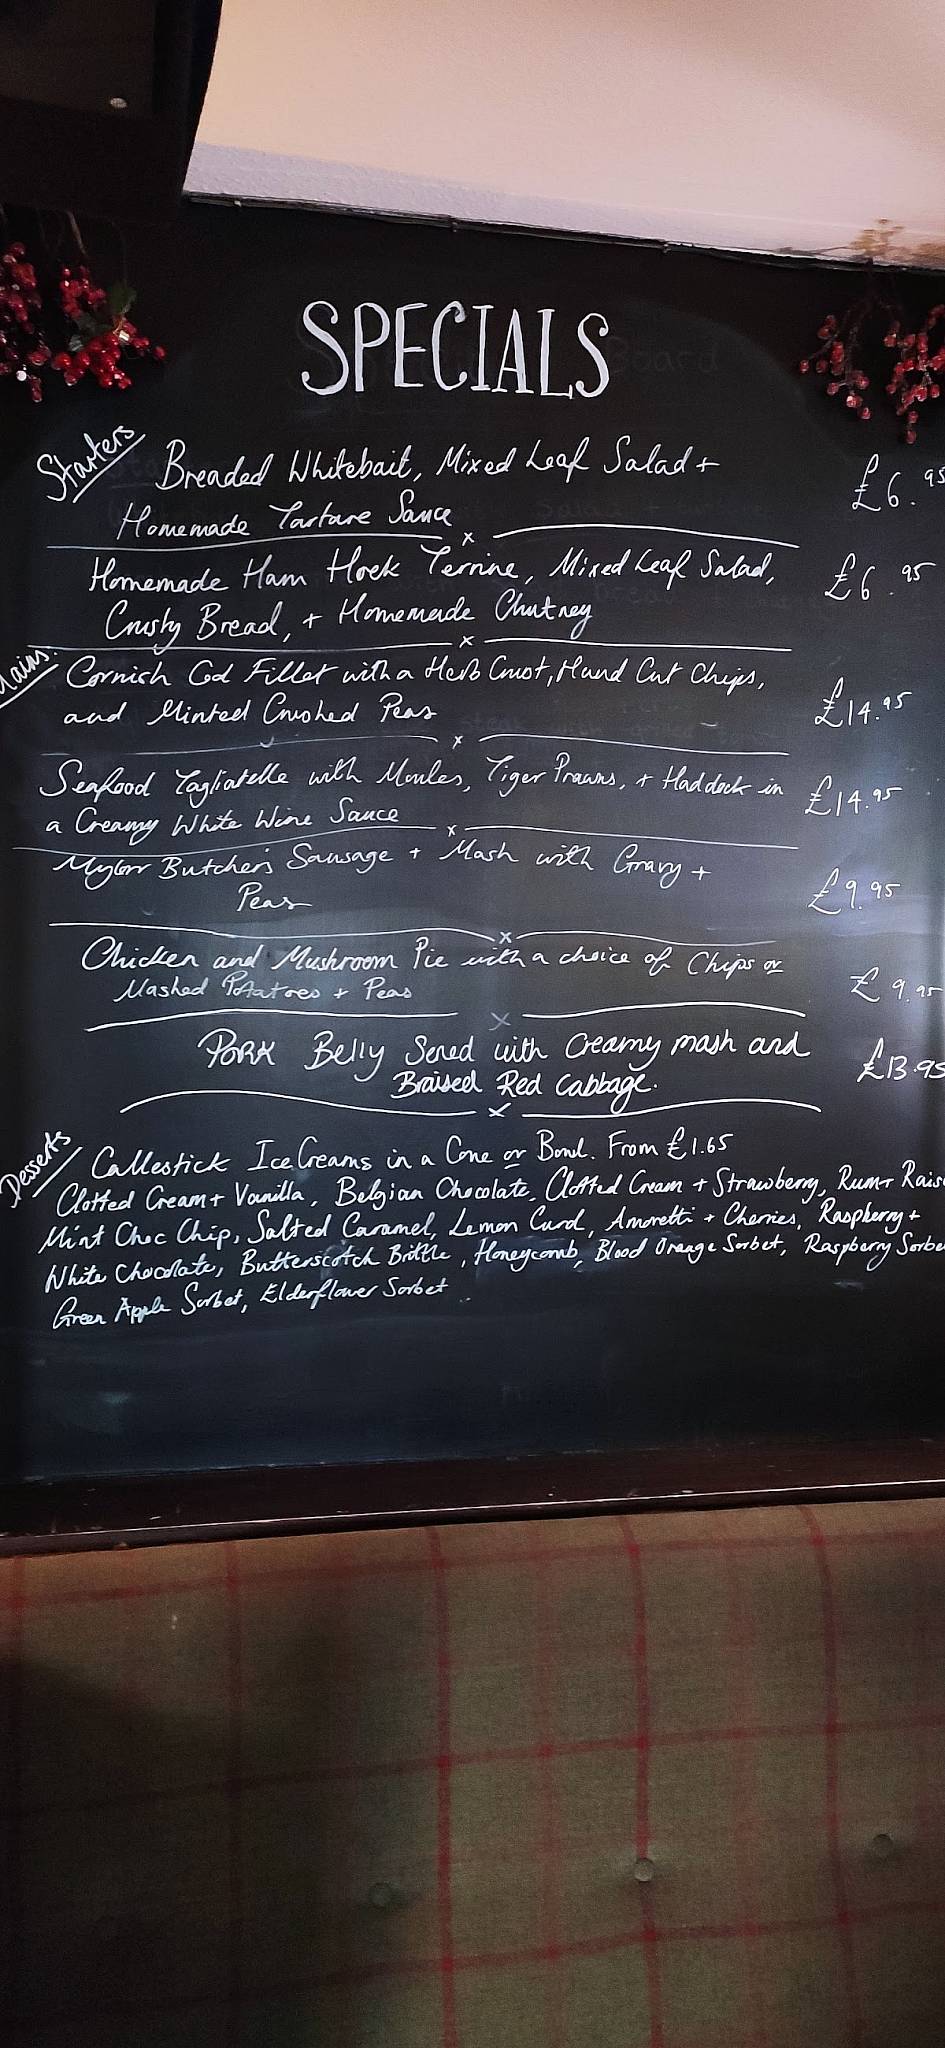 SPECIALS
Starters Breaded Whitebait, Mixed Leaf Salad + £6.95
Homemade Tartare Sauce
Homemade Ham Hock Terrine, Mixed Leaf Salad, £6.95
Crusty Bread, + Homemade Chutney
Mains. Cornish Cod Fillet with a Herb Crust, Hand Cut Chips, £14.95
and Minted Crushed Peas
Seafood Tagliatelle with Moules, Tiger Prawns, + Haddock in £14.95
a Creamy White Wine Sauce
Mylor Butcher's Sausage + Mash with Gravy + £9.95
Peas
Chicken and Mushroom Pie with a choice of Chips or £9.95
Mashed Potatoes + Peas
Pork Belly Served with Creamy mash and £13.95
Braised Red Cabbage.
Desserts Callestick Ice Creams in a Cone or Bowl. From £1.65
Clotted Cream + Vanilla, Belgian Chocolate, Clotted Cream + Strawberry, Rum + Rais
Mint Choc Chip, Salted Caramel, Lemon Curd, Amoretti + Cherries, Raspberry +
White Chocolate, Butterscotch Brittle, Honeycomb, Blood Orange Sorbet, Raspberry Sorbe
Green Apple Sorbet, Elderflower Sorbet